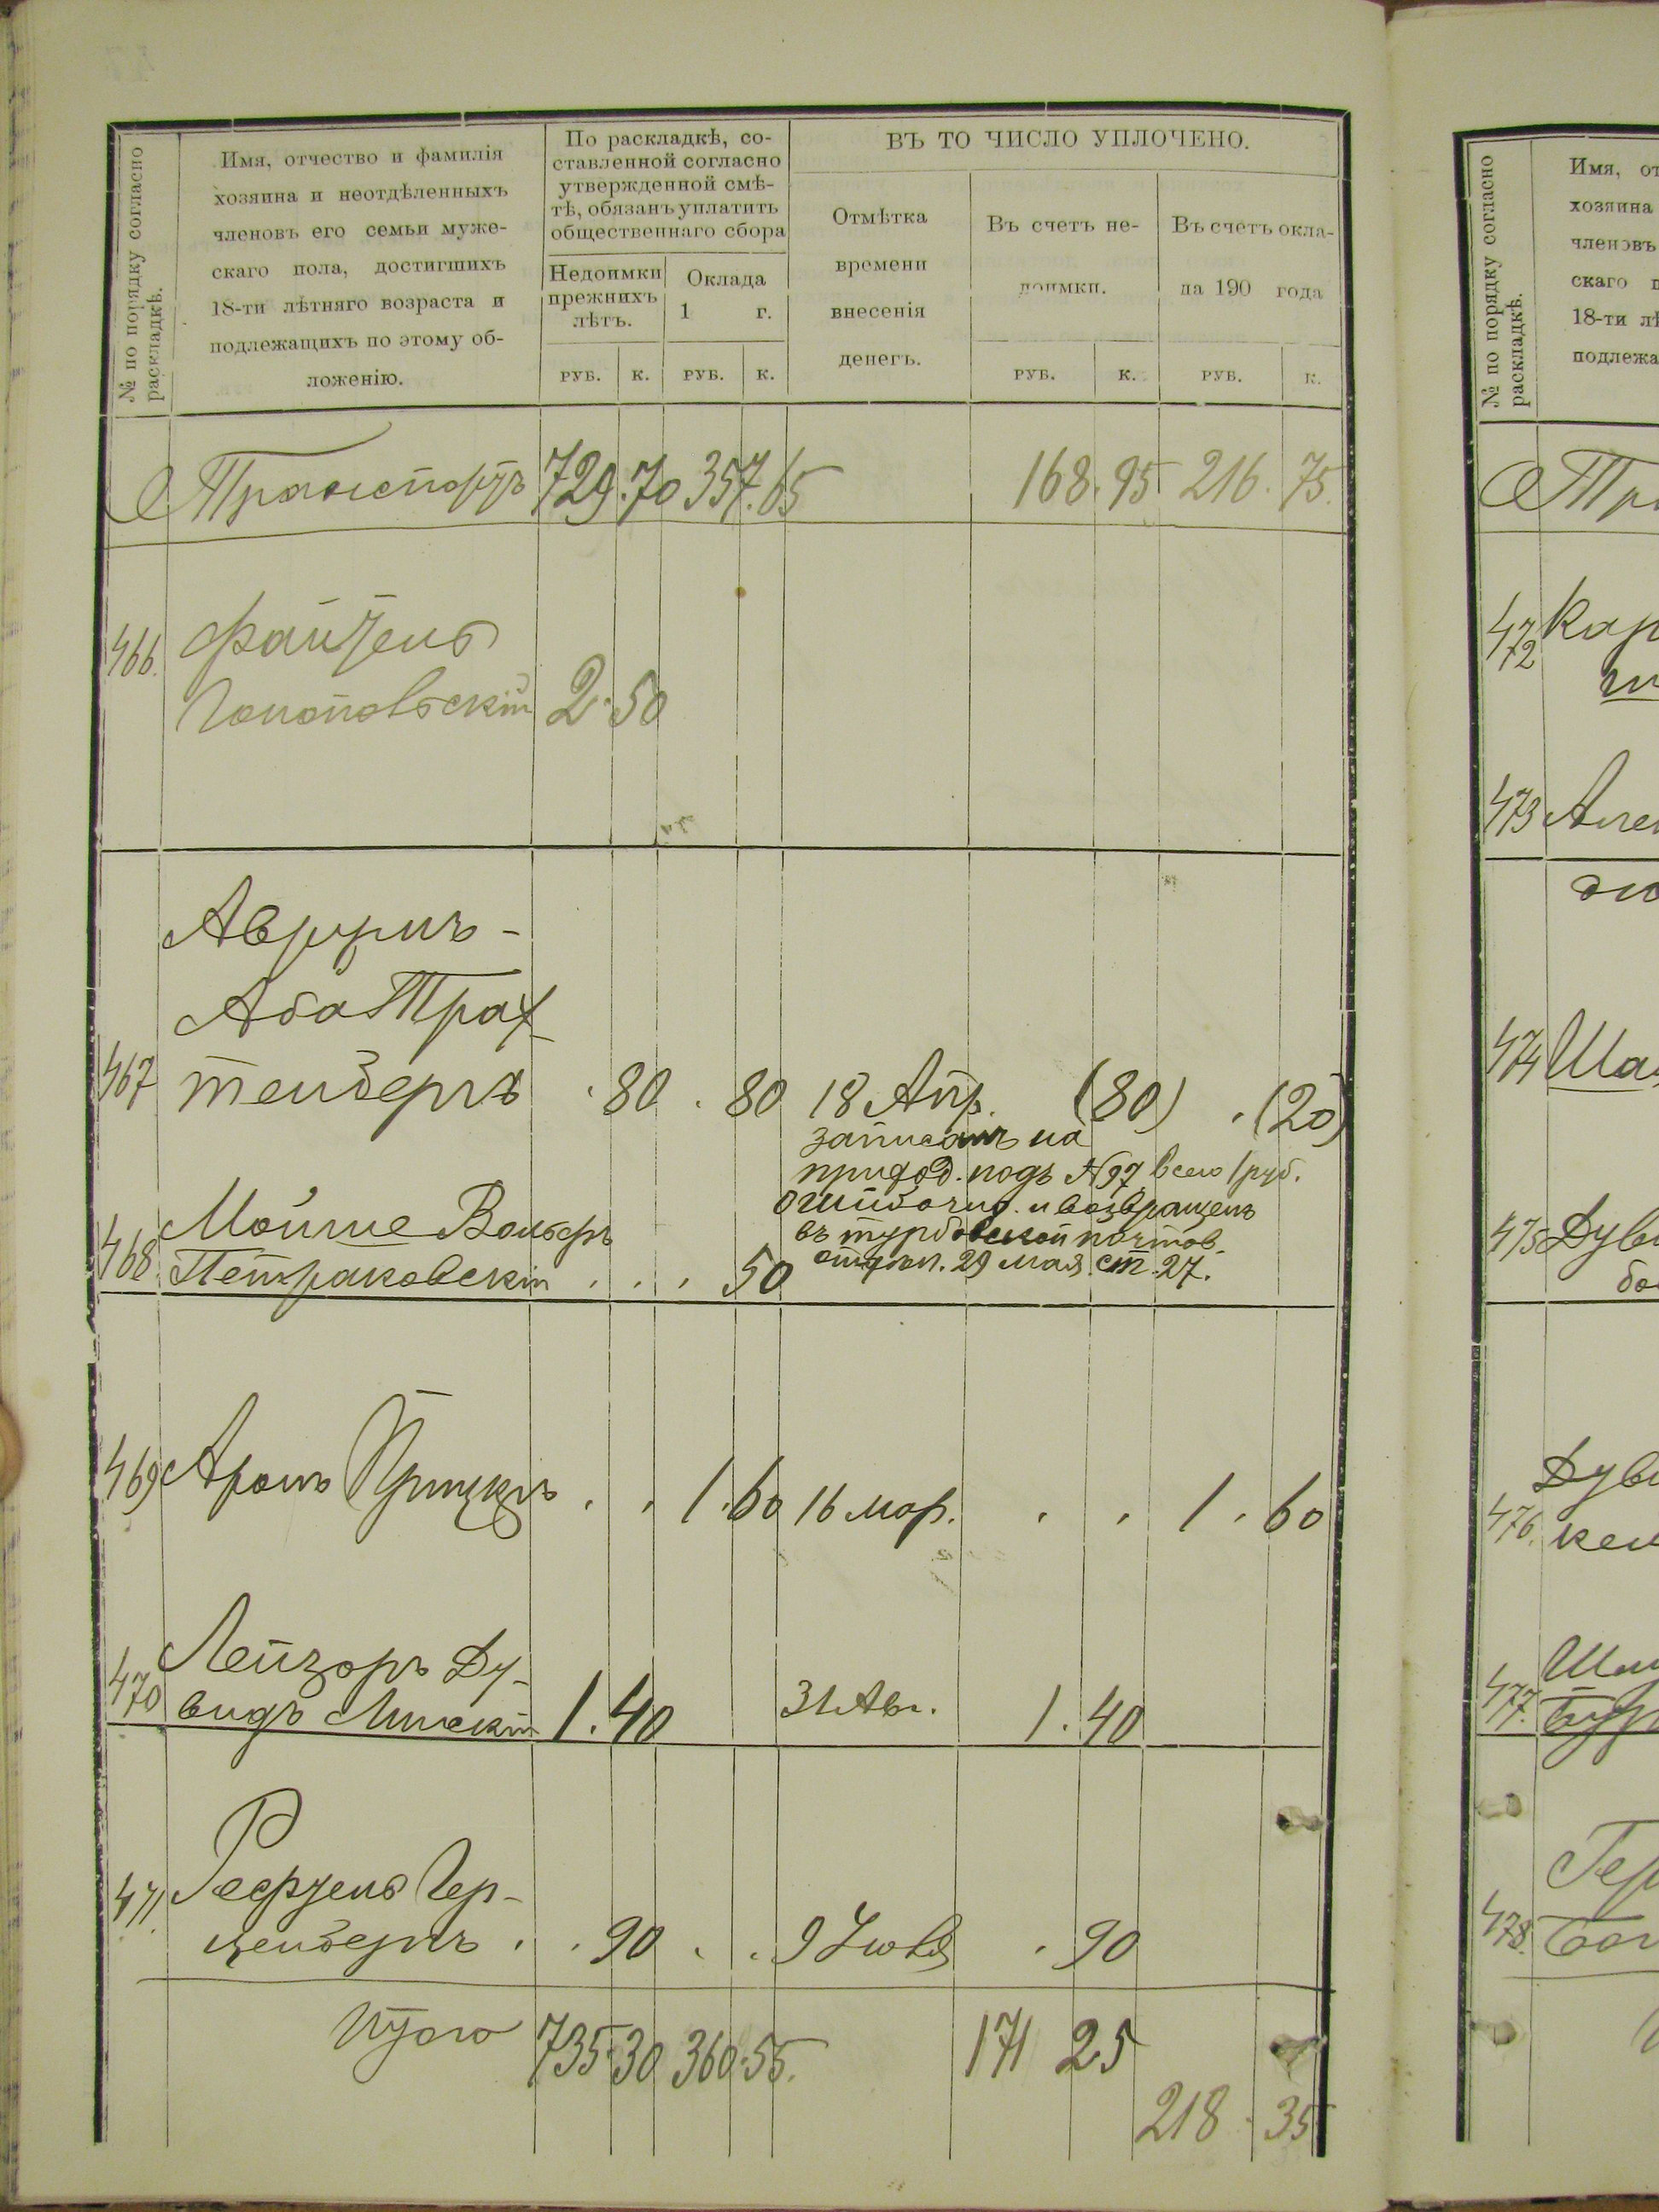 № по порядку согласно
раскладкѣ.
Имя, отчество и фамилія
хозяина и неотдѣленныхъ
членовъ его семьи муже-
скаго пола, достигшихъ
18-ти лѣтняго возраста и
подлежащихъ по этому об-
ложенію.
По раскладкѣ, со-
ставленной согласно
утвержденной смѣ-
тѣ, обязанъ уплатить
общественнаго сбора
Недоимки
прежнихъ
лѣтъ.
Оклада
1 г.
РУБ. К. РУБ. К.
ВЪ ТО ЧИСЛО УПЛОЧЕНО.
Отмѣтка
времени
внесенія
денегъ.
Въ счетъ не-
доимки.
Въ счетъ окла-
да 190 года
РУБ. К. РУБ. К.
Транспортъ 729.70 357.65 168.95 216.75.
466. Файвель
2.50
Аврумъ-
Аба Трах-
467 тенбергъ .80 .80 18 Апр. (80) .(20)
записанъ на
приход. подъ №97 всего 1 руб.
ошибочно и возвращенъ
въ турбовской почтов.
29 мая ст. 27.
Мойше Вольфъ
468. Петраковскій . . . 50
469 Аронъ . . 1.60 16 мар. . . 1.60
Лейзоръ Ду-
470 видъ Минскій 1.40 31 Авг. 1.40
471. Гер-
ценбергъ . .90 . . 9 Іюля .90
Итого 735.30 360.55. 171 25
218.35
№ по порядку согласно
раскладкѣ.
Имя, от
хозяина
членовъ
скаго п
18-ти лѣ
подлежа
Тр
472 Кар
473 Але
474 Ша
475 Дуви
бо
Дуви
476. кел
477.
Гер
478.